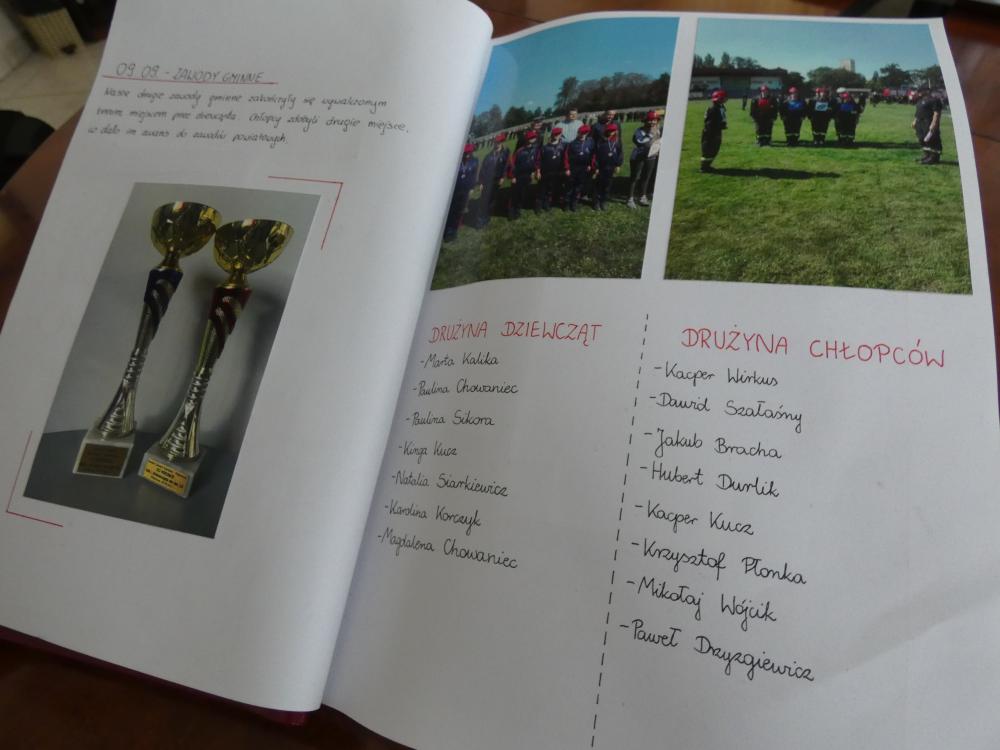 09.09. - ZAWODY GMINNE
Nasze drugie zawody gminne zakończyły się wywalczonym
trzecim miejscem przez dziewczęta. Chłopcy zdobyli drugie miejsce,
co dało im awans do zawodów powiatowych.
DRUŻYNA DZIEWCZĄT
-Marta Kalika
-Paulina Chowaniec
-Paulina Sikora
-Kinga Kucz
-Natalia Siarkiewicz
-Karolina Korczyk
-Magdalena Chowaniec
DRUŻYNA CHŁOPCÓW
-Kacper Wirkus
-Dawid Szałaśny
-Jakub Bracha
-Hubert Durlik
-Kacper Kucz
-Krzysztof Płonka
-Mikołaj Wójcik
-Paweł Drzyzgiewicz